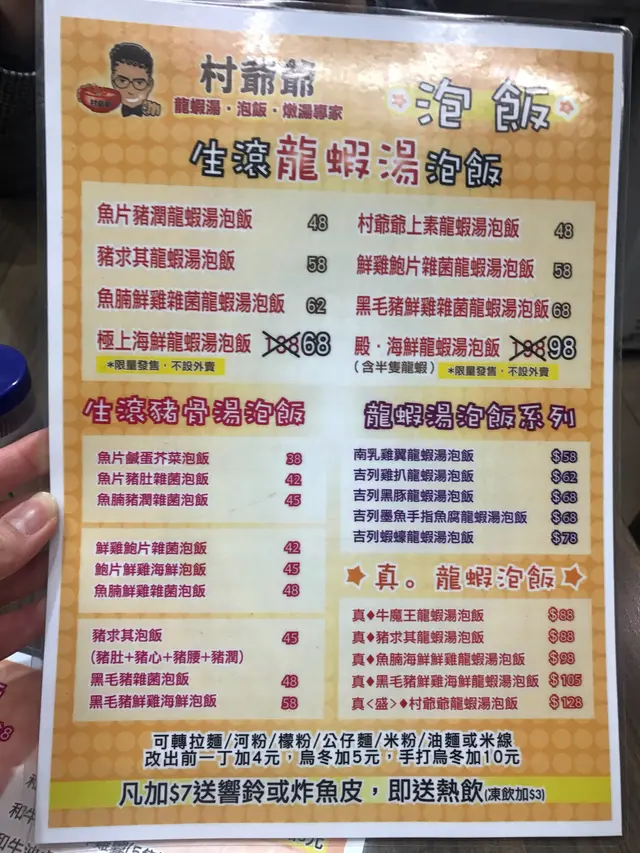 村爺爺
龍蝦湯・泡飯・燉湯專家
泡飯
生滾龍蝦湯泡飯
魚片豬潤龍蝦湯泡飯 48
豬求其龍蝦湯泡飯 58
魚腩鮮雞雜菌龍蝦湯泡飯 62
極上海鮮龍蝦湯泡飯 68
*限量發售・不設外賣
村爺爺上素龍蝦湯泡飯 48
鮮雞鮑片雜菌龍蝦湯泡飯 58
黑毛豬鮮雞雜菌龍蝦湯泡飯 68
殿・海鮮龍蝦湯泡飯 98
(含半隻龍蝦) *限量發售・不設外賣
生滾豬骨湯泡飯
魚片鹹蛋芥菜泡飯 38
魚片豬肚雜菌泡飯 42
魚腩豬潤雜菌泡飯 45
鮮雞鮑片雜菌泡飯 42
鮑片鮮雞海鮮泡飯 45
魚腩鮮雞雜菌泡飯 48
豬求其泡飯 45
(豬肚+豬心+豬腰+豬潤)
黑毛豬雜菌泡飯 48
黑毛豬鮮雞海鮮泡飯 58
龍蝦湯泡飯系列
南乳雞翼龍蝦湯泡飯 $58
吉列雞扒龍蝦湯泡飯 $62
吉列黑豚龍蝦湯泡飯 $68
吉列墨魚手指魚腐龍蝦湯泡飯 $68
吉列蝦蠔龍蝦湯泡飯 $78
真。龍蝦泡飯
真♦牛魔王龍蝦湯泡飯 $88
真♦豬求其龍蝦湯泡飯 $88
真♦魚腩海鮮鮮雞龍蝦湯泡飯 $98
真♦黑毛豬鮮雞海鮮龍蝦湯泡飯 $105
真<盛>♦村爺爺龍蝦湯泡飯 $128
可轉拉麵/河粉/檬粉/公仔麵/米粉/油麵或米線
改出前一丁加4元，烏冬加5元，手打烏冬加10元
凡加$7送響鈴或炸魚皮，即送熱飲(凍飲加$3)